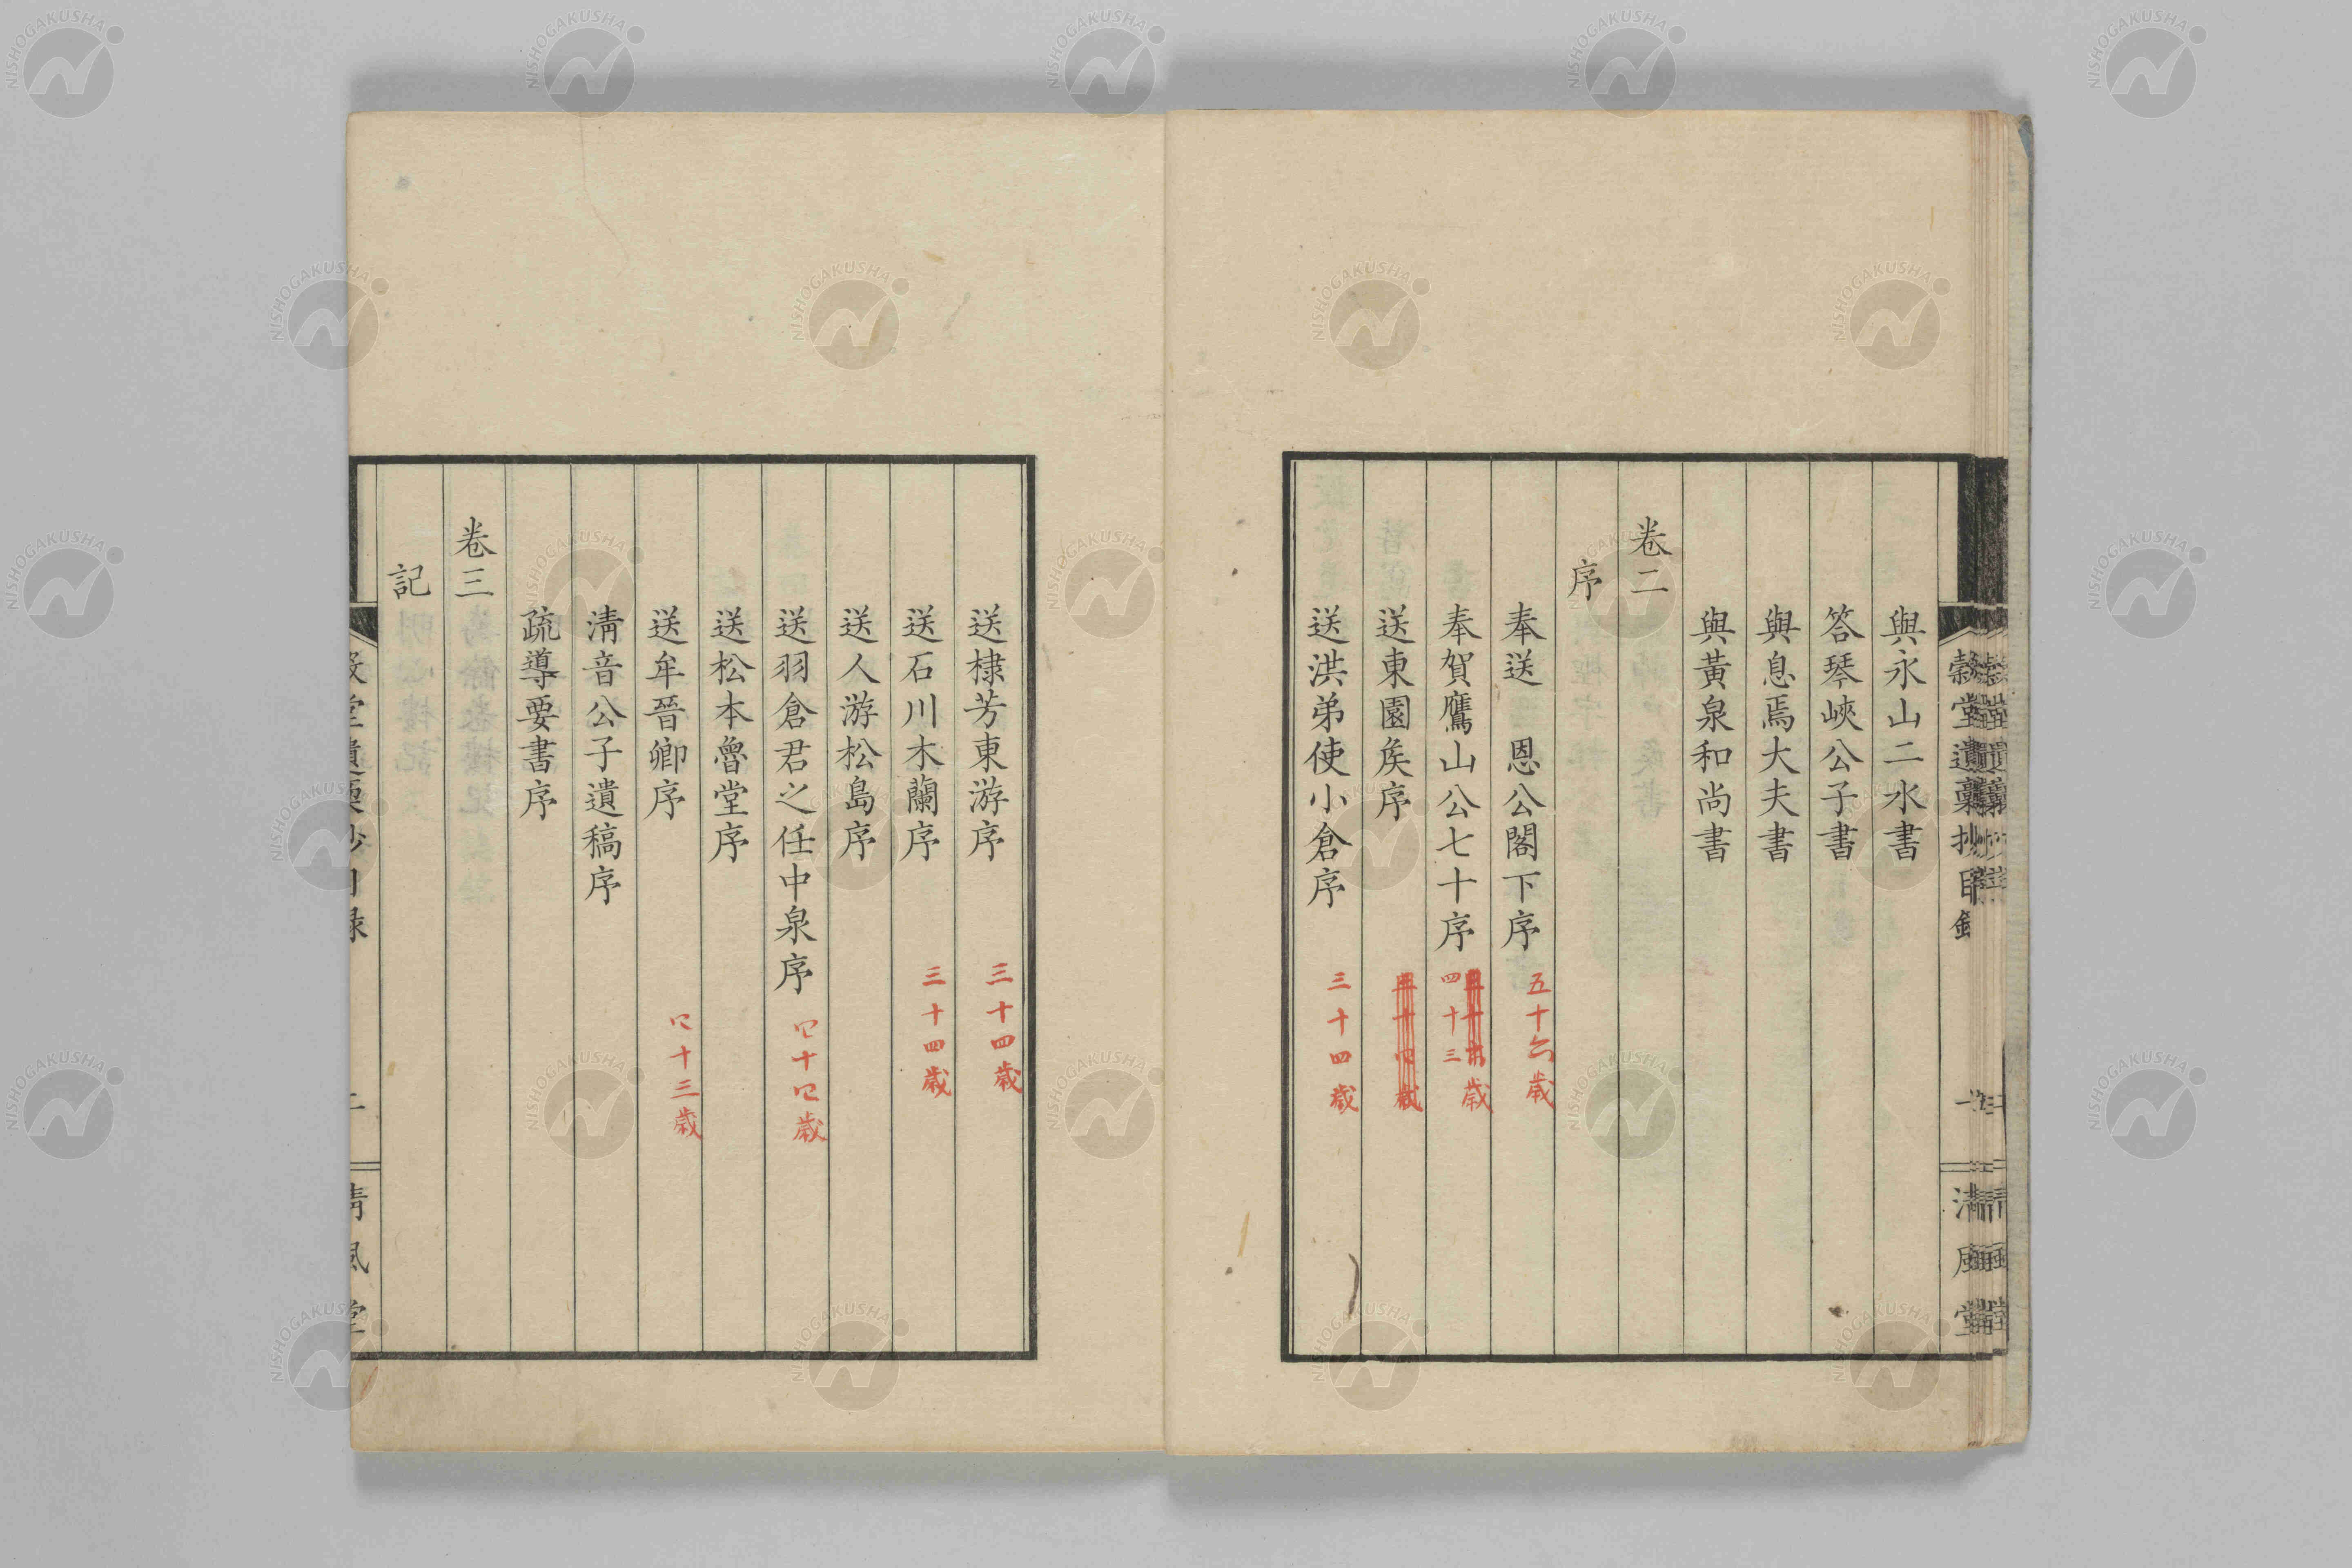 與永山二水書
答琴峽公子書
與息焉大夫書
與黃泉和尚書
卷二
序
奉送　恩公閣下序 五十六歲
奉賀鷹山公七十序 四十三歲
送東園矦序
送洪弟使小倉序 三十四歲
穀堂遺稾抄目錄
清風堂
送棣芳東游序 三十四歲
送石川木蘭序 三十四歲
送人游松島序
送羽倉君之任中泉序 四十四歲
送牟晉卿序 四十三歲
送松本魯堂序
清音公子遺稿序
疏導要書序
卷三
記
NISHOGAKUSHA